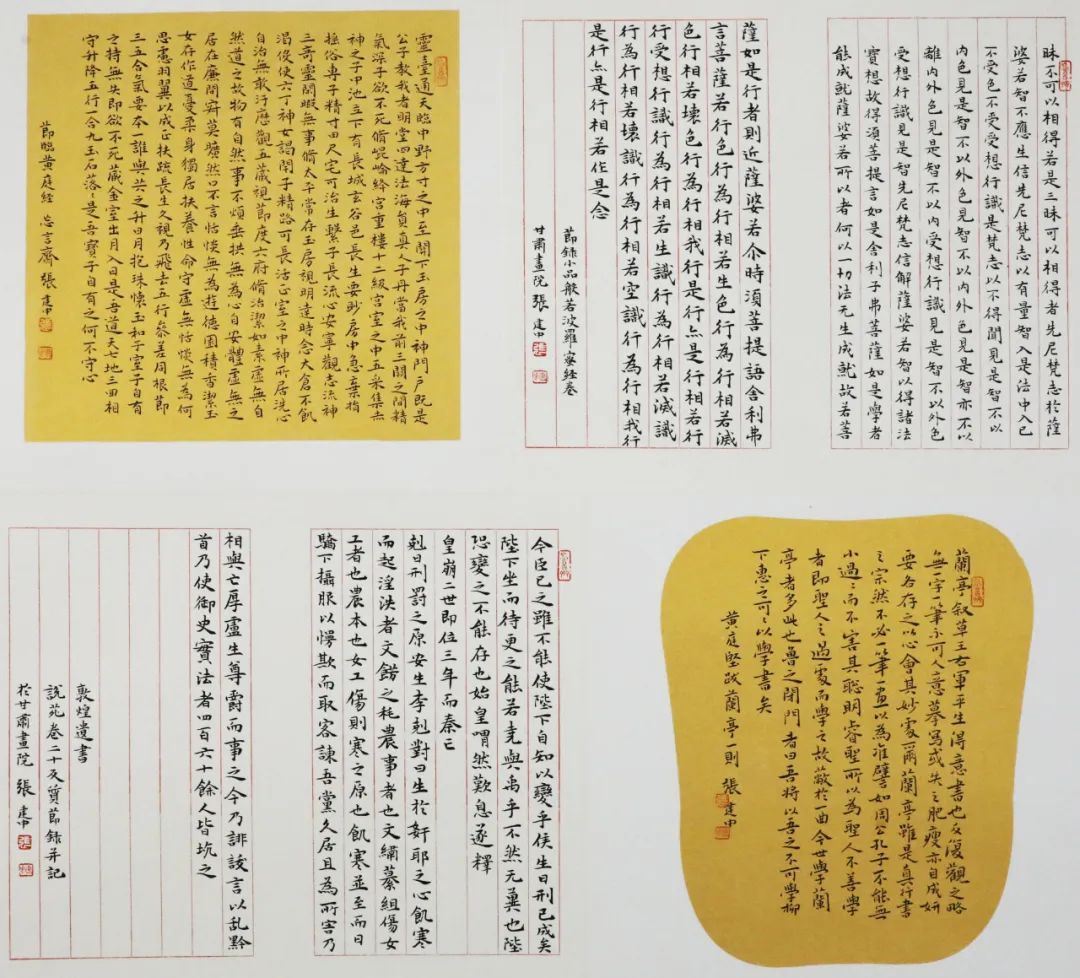 靈臺通天臨中野方寸之中至關下玉房之中神門戶既是
公子教我者明堂四達法海員真人子丹當我前三關之間精
氣深子欲不死脩崐崘絳宮重樓十二級宮室之中五采集赤
神之子中池立下有長城玄谷邑長生要眇房中急棄捐
搖俗專子精寸田尺宅可治生繫子長流心安寧觀志流神
三奇靈閑暇無事脩太平常存玉房視明達時念大倉不飢
渴役使六丁神女謁閉子精路可長活正室之中神所居洗心
自治無敢汙歷觀五藏視節度六府脩治潔如素虛無自
然道之故物有自然事不煩垂拱無為心自安體虛無之
居在廉間寂莫曠然口不言恬惔無為遊德園積香潔玉
女存作道憂柔身獨居扶養性命守虛無恬惔無為何
思慮羽翼以成正扶疎長生久視乃飛去五行參差同根節
三五合氣要本一誰與共之升日月抱珠懷玉和子室子自有
之持無失即欲不死藏金室出月入日是吾道天七地三回相
守升降五行一合九玉石落是吾寶子自有之何不守心
節臨黃庭經 忘言齋 張建中
昧不可以相得若是三昧可以相得者先尼梵志於薩
婆若智不應生信先尼梵志以有量智入是法中入已
不受色不受受想行識是梵志以不得聞見是智不以
內色見是智不以外色見智不以內外色見是智亦不以
離內外色見是智不以內受想行識見是智不以外色
受想行識見是智先尼梵志信解薩婆若智以得諸法
實想故得須菩提言如是舍利子弗菩薩如是學者
能成就薩婆若所以者何以一切法无生成就故若菩
薩如是行者則近薩婆若尒時須菩提語舍利弗
言菩薩若行色行為行相若生色行為行相若滅
色行相若壞色行為行相我行是行亦是行相若行
行受想行識行為行相若生識行為行相若滅識
行為行相若壞識行為行相若空識行為行相我行
是行亦是行相若作是念
節錄小品般若波羅蜜經卷
甘肅畫院 張建中
今臣已之雖不能使陛下自知以變乎侯生曰刑已成矣
陛下坐而待更之能若堯與禹乎不然元冀也陛
恐變之不能存也始皇喟然歎息遂釋
皇崩二世即位三年而秦亡
剋曰刑罰之原安生李剋對曰生於奸耶之心飢寒
而起淫泆者文餝之耗農事者也文繡纂組傷女
工者也農本也女工傷則寒之原也飢寒並至而日
驕下攝服以愕欺而取容諫吾黨久居且為所害乃
相與亡厚盧生尊爵而事之今乃誹謗言以乱黔
首乃使御史實法者四百六十餘人皆坑之
敦煌遺書
說苑卷二十反質節錄并記
於甘肅畫院 張建中
蘭亭敘草王右軍平生得意書也反復觀之略
無一字一筆不可人意摹寫或失之肥瘦亦自成妍
要各存之以心會其妙處爾蘭亭雖是真行書
之宗然不必一筆一畫以為准譬如周公孔子不能無
小過過而不害其聰明睿聖所以為聖人不善學
者即聖人之過處而學之故蔽於一曲今世學蘭
亭者多此也魯之閉門者曰吾將以吾之不可學柳
下惠之可可以學書矣
黃庭堅跋蘭亭一則 張建中